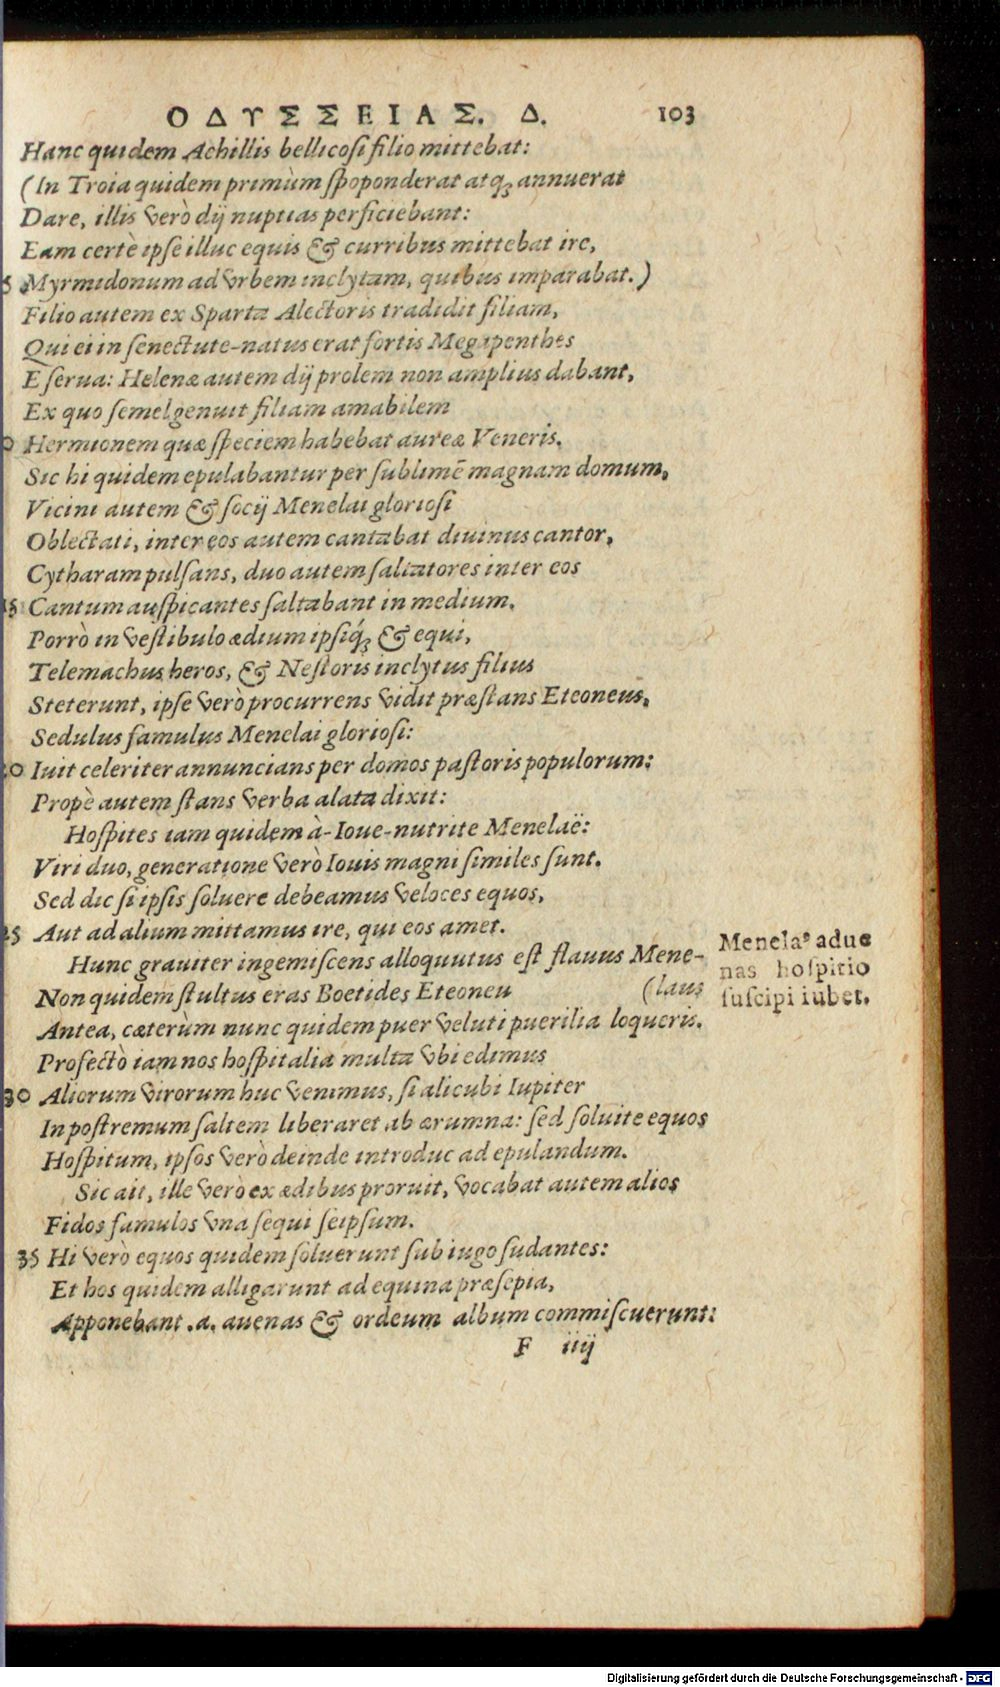 ΟΔΥΣΣΕΙΑΣ. Δ. 103
Hanc quidem Achillis bellicosi filio mittebat:
(In Troia quidem primùm spoponderat atq; annuerat
Dare, illis verò dij nuptias perficiebant:
Eam certè ipse illuc equis & curribus mittebat ire,
5 Myrmidonum ad vrbem inclytam, quibus imparabat.)
Filio autem ex Sparta Alectoris tradidit filiam,
Qui ei in senectute-natus erat fortis Megapenthes
E serua: Helenæ autem dij prolem non amplius dabant,
Ex quo semel genuit filiam amabilem
0 Hermionem quæ speciem habebat aureæ Veneris.
Sic hi quidem epulabantur per sublimē magnam domum,
Vicini autem & socij Menelai gloriosi
Oblectati, inter eos autem cantabat diuinus cantor,
Cytharam pulsans, duo autem saltatores inter eos
15 Cantum auspicantes saltabant in medium.
Porrò in vestibulo ædium ipsiq́; & equi,
Telemachus heros, & Nestoris inclytus filius
Steterunt, ipse verò procurrens vidit præstans Eteoneus,
Sedulus famulus Menelai gloriosi:
20 Iuit celeriter annuncians per domos pastoris populorum:
Propè autem stans verba alata dixit:
Hospites iam quidem à-Ioue-nutrite Menelaë:
Viri duo, generatione verò Iouis magni similes sunt.
Sed dic si ipsis soluere debeamus veloces equos,
25 Aut ad alium mittamus ire, qui eos amet.
Hunc grauiter ingemiscens alloquutus est flauus Mene-
Non quidem stultus eras Boetides Eteoneu (laus
Antea, cæterùm nunc quidem puer veluti puerilia loqueris.
Profectò iam nos hospitalia multa vbi edimus
30 Aliorum virorum huc venimus, si alicubi Iupiter
In postremum saltem liberaret ab ærumna: sed soluite equos
Hospitum, ipsos verò deinde introduc ad epulandum.
Sic ait, ille verò ex ædibus proruit, vocabat autem alios
Fidos famulos vna sequi seipsum.
35 Hi verò equos quidem soluerunt sub iugo sudantes:
Et hos quidem alligarunt ad equina præsepia,
Apponebant .a. auenas & ordeum album commiscuerunt:
F iiij
Menelaꝰ adue
nas hospitio
suscipi iubet.
Digitalisierung gefördert durch die Deutsche Forschungsgemeinschaft - DFG